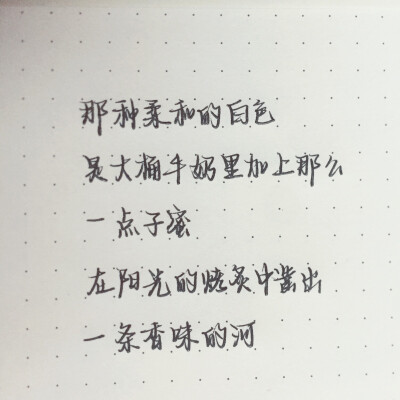 那种柔和的白色
是大桶牛奶里加上那么
一点子蜜
在阳光的烧炙中凿出
一条香味的河